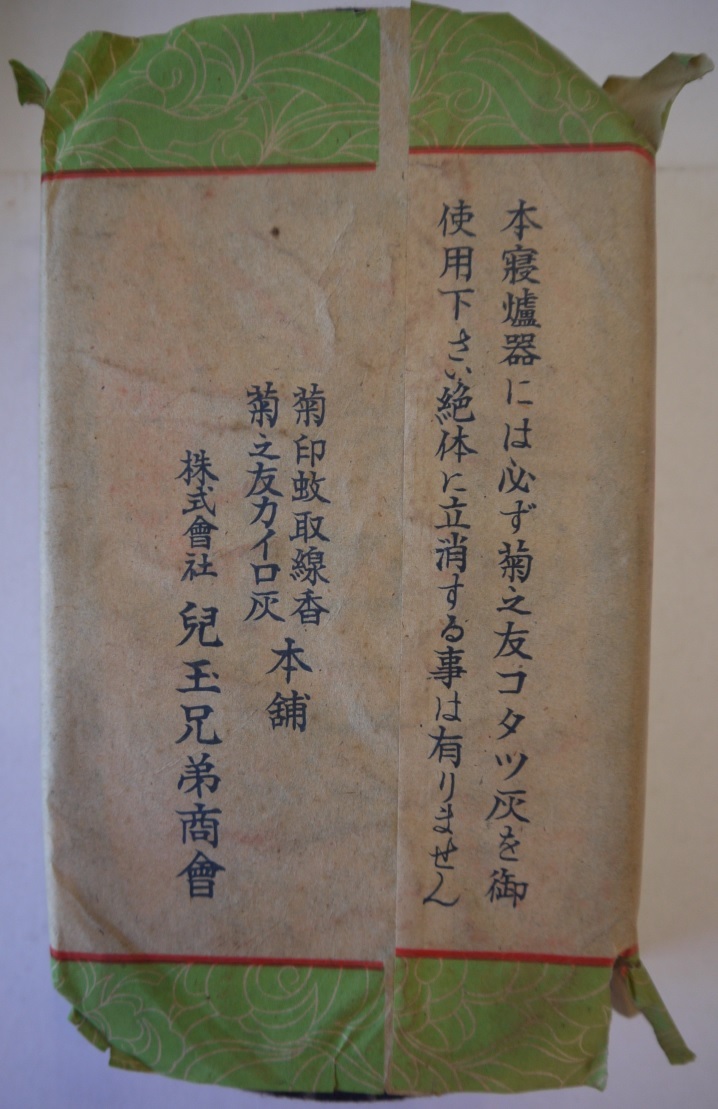 本寢爐器には必ず菊之友コタツ灰を御
使用下さい絶体に立消する事は有りません
菊印蚊取線香
菊之友カイロ灰
本舗
株式會社 兒玉兄弟商會